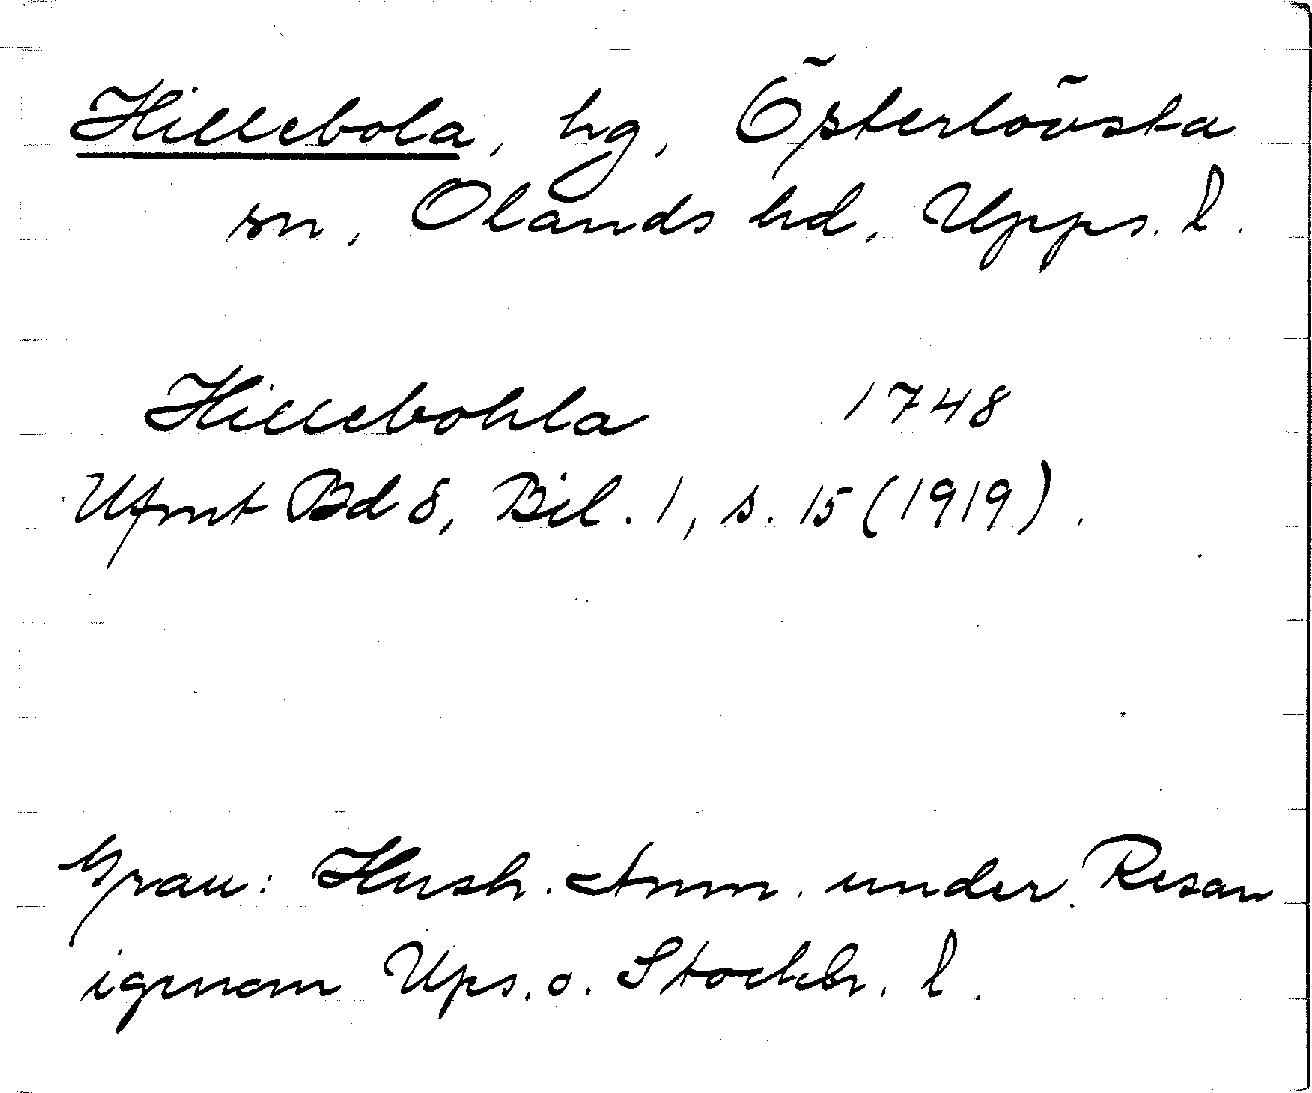 Hillebola, hg, Österlövsta
sn, Olands hd, Upps. l.
Hillebohla 1748
Ufmt Bd 8, Bil. 1, s. 15 (1919).
Grau: Hush. Anm. under Resan
igenom Ups. o. Stockh. l.